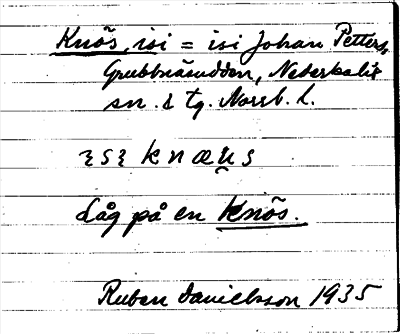 Knös, isi = isi Johan Petters,
Grubbnäsudden, Nederkalix
sn. & tg. Norrb. l.
knæus
Låg på en Knös.
Ruben Danielsson 1935